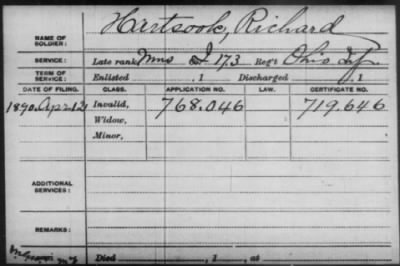 NAME OF SOLDIER: Hartsook, Richard
SERVICE: Late rank, I 173 Reg't Ohio Inf.
TERM OF SERVICE: Enlisted , 1 Discharged , 1
DATE OF FILING. CLASS. APPLICATION NO. LAW. CERTIFICATE NO.
1890 Apr. 12 Invalid, 768.046 719.646
Widow,
Minor,
ADDITIONAL SERVICES:
REMARKS:
Died , 1 , at